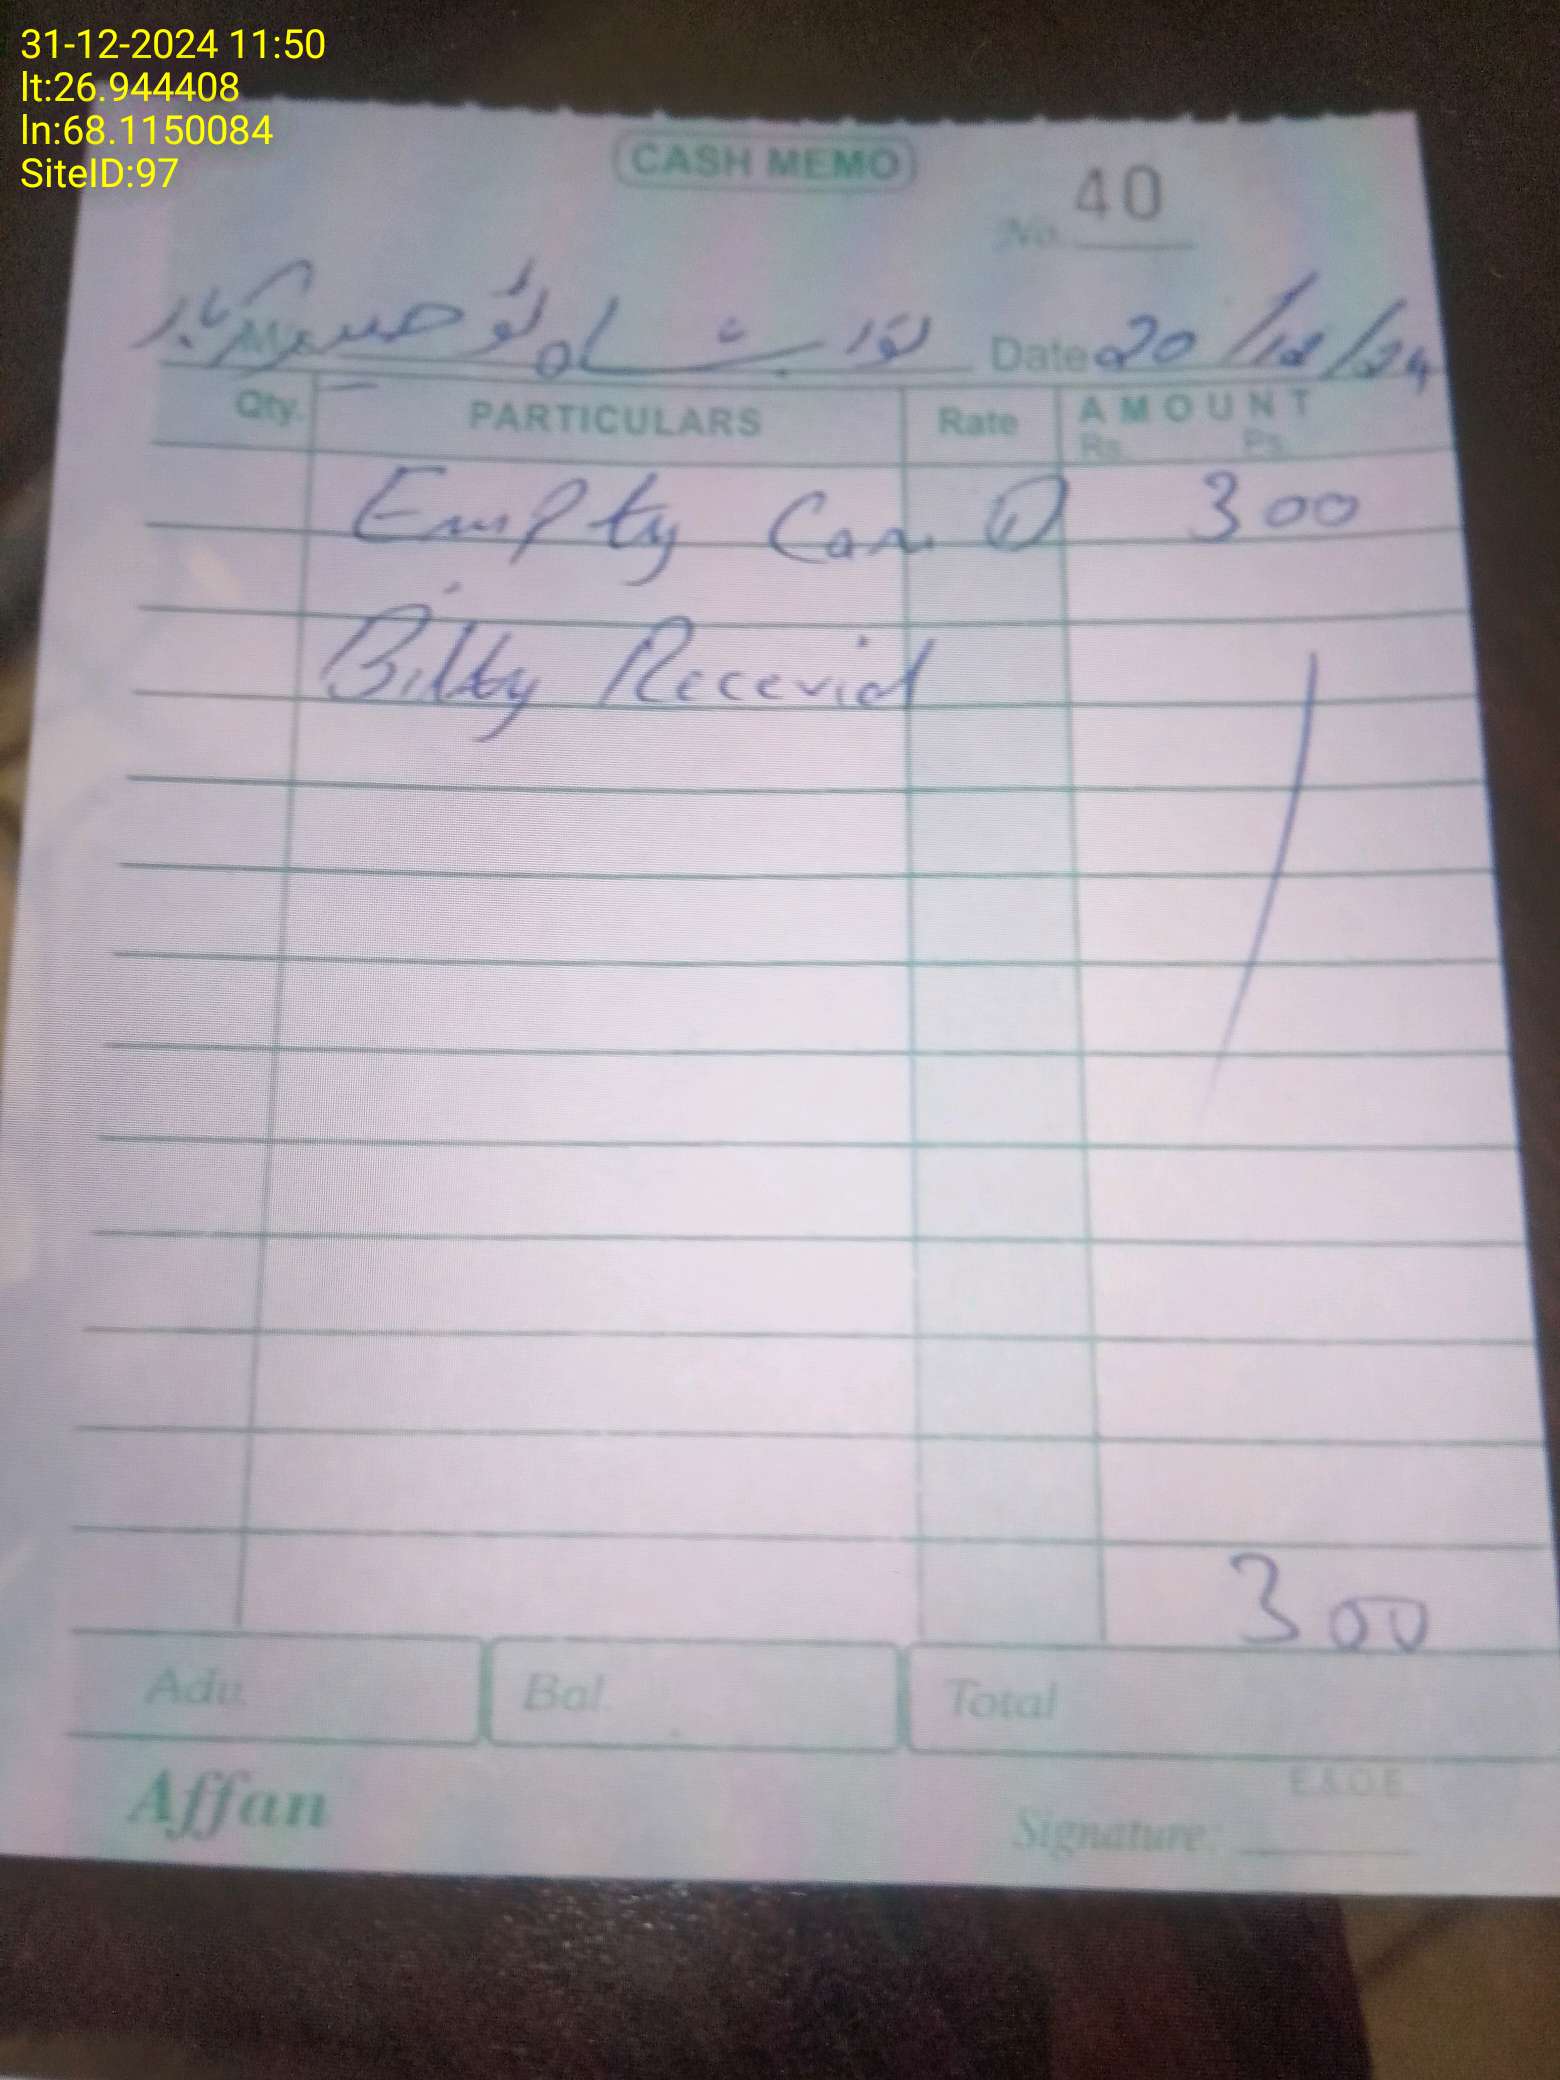 31-12-2024 11:50
lt:26.944408
ln:68.1150084
SiteID:97
CASH MEMO
No. 40
نواب شاہ ٹو
Date 20/12/24
Qty. PARTICULARS Rate AMOUNT
Rs. Ps.
Empty Can 1 300
Bilty Recevied
300
Adv. Bal. Total
E.&.O.E.
Affan Signature: